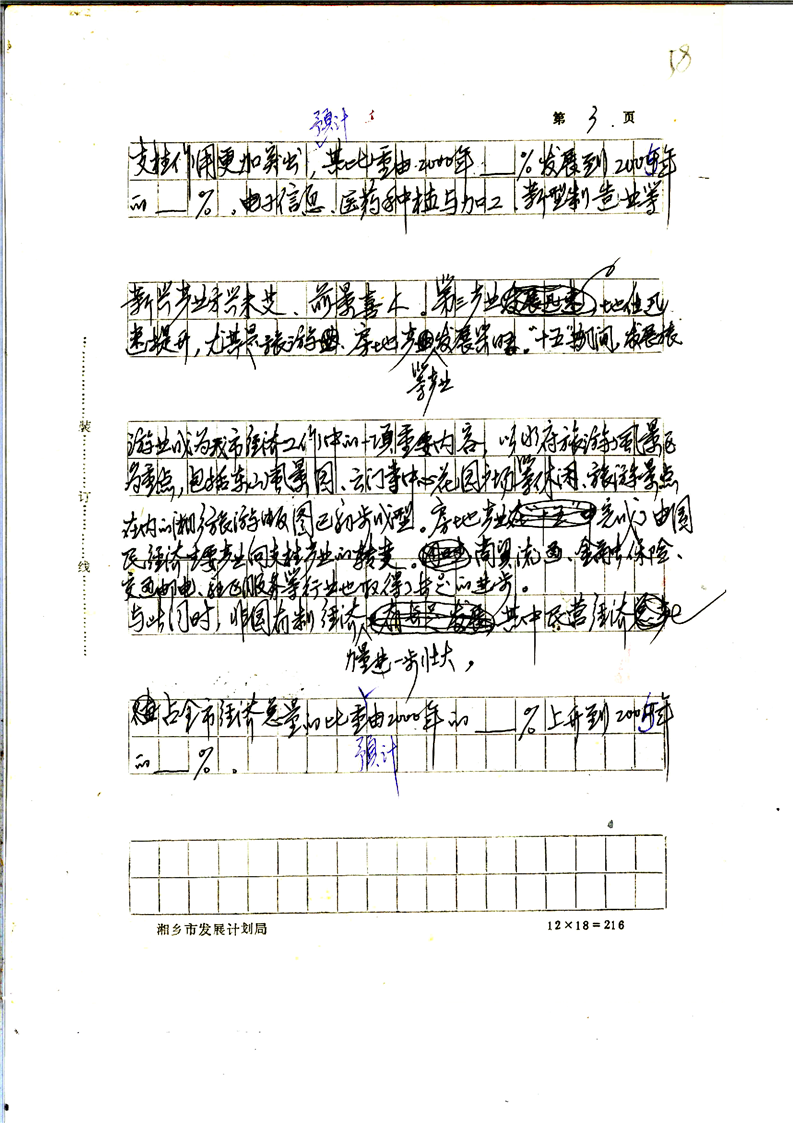 58
第 3 页
预计
支柱作用更加突出,其比重由2000年__%发展到2005年
的__%。电子信息、医药种植与加工、新型制造业等
新兴产业方兴未艾、前景喜人。第三产业地位迅
速提升,尤其是旅游、房地产发展
等产业
"十五"期间,发展旅
游业成为我市经济工作中的一项重要内容,以水府旅游风景区
为重点,包括东山风景园、云门寺中心花园广场等休闲、旅游景点
在内的湘乡旅游版图已初步成型。房地产业完成了由国
民经济主要产业向支柱产业的转变。商贸流通、金融保险、
交通邮电、社区服务等行业也取得了长足的进步。
与此同时,非国有制经济 其中民营经济
力量进一步壮大,
占全市经济总量的比重由2000年的__%上升到2005年
预计
的__%。
装订线
湘乡市发展计划局
12×18=216